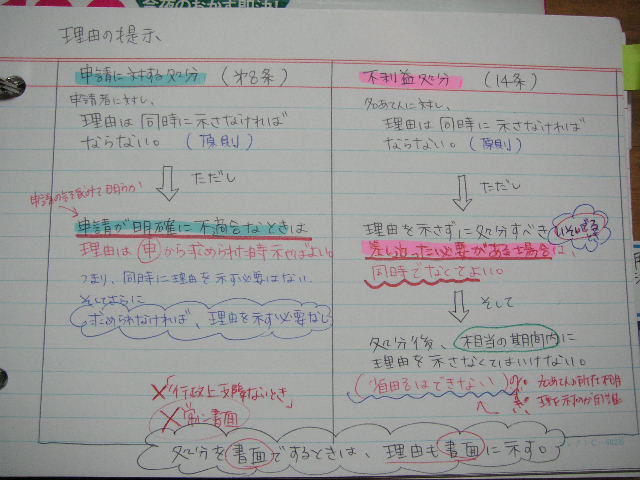 今夜のおかず
理由の提示
申請に対する処分 （第8条）
申請者に対し、
理由は同時に示さなければ
ならない。（原則）
ただし
申請が明確に不適合なときは
理由は申から求められた時示せばよい。
つまり、同時に理由を示す必要はない
そしてさらに
求められなければ、理由を示す必要なし
×「行政上支障ないとき」
×常に書面
不利益処分 （14条）
名あて人に対し、
理由は同時に示さなければ
ならない。（原則）
ただし
理由を示さずに処分すべき
いそいでる
差し迫った必要がある場合は、
同時でなくてよい。
そして
処分後、相当の期間内に
理由を示さなくてはいけない。
（省略はできない）
処分を書面でするときは、理由も書面に示す。